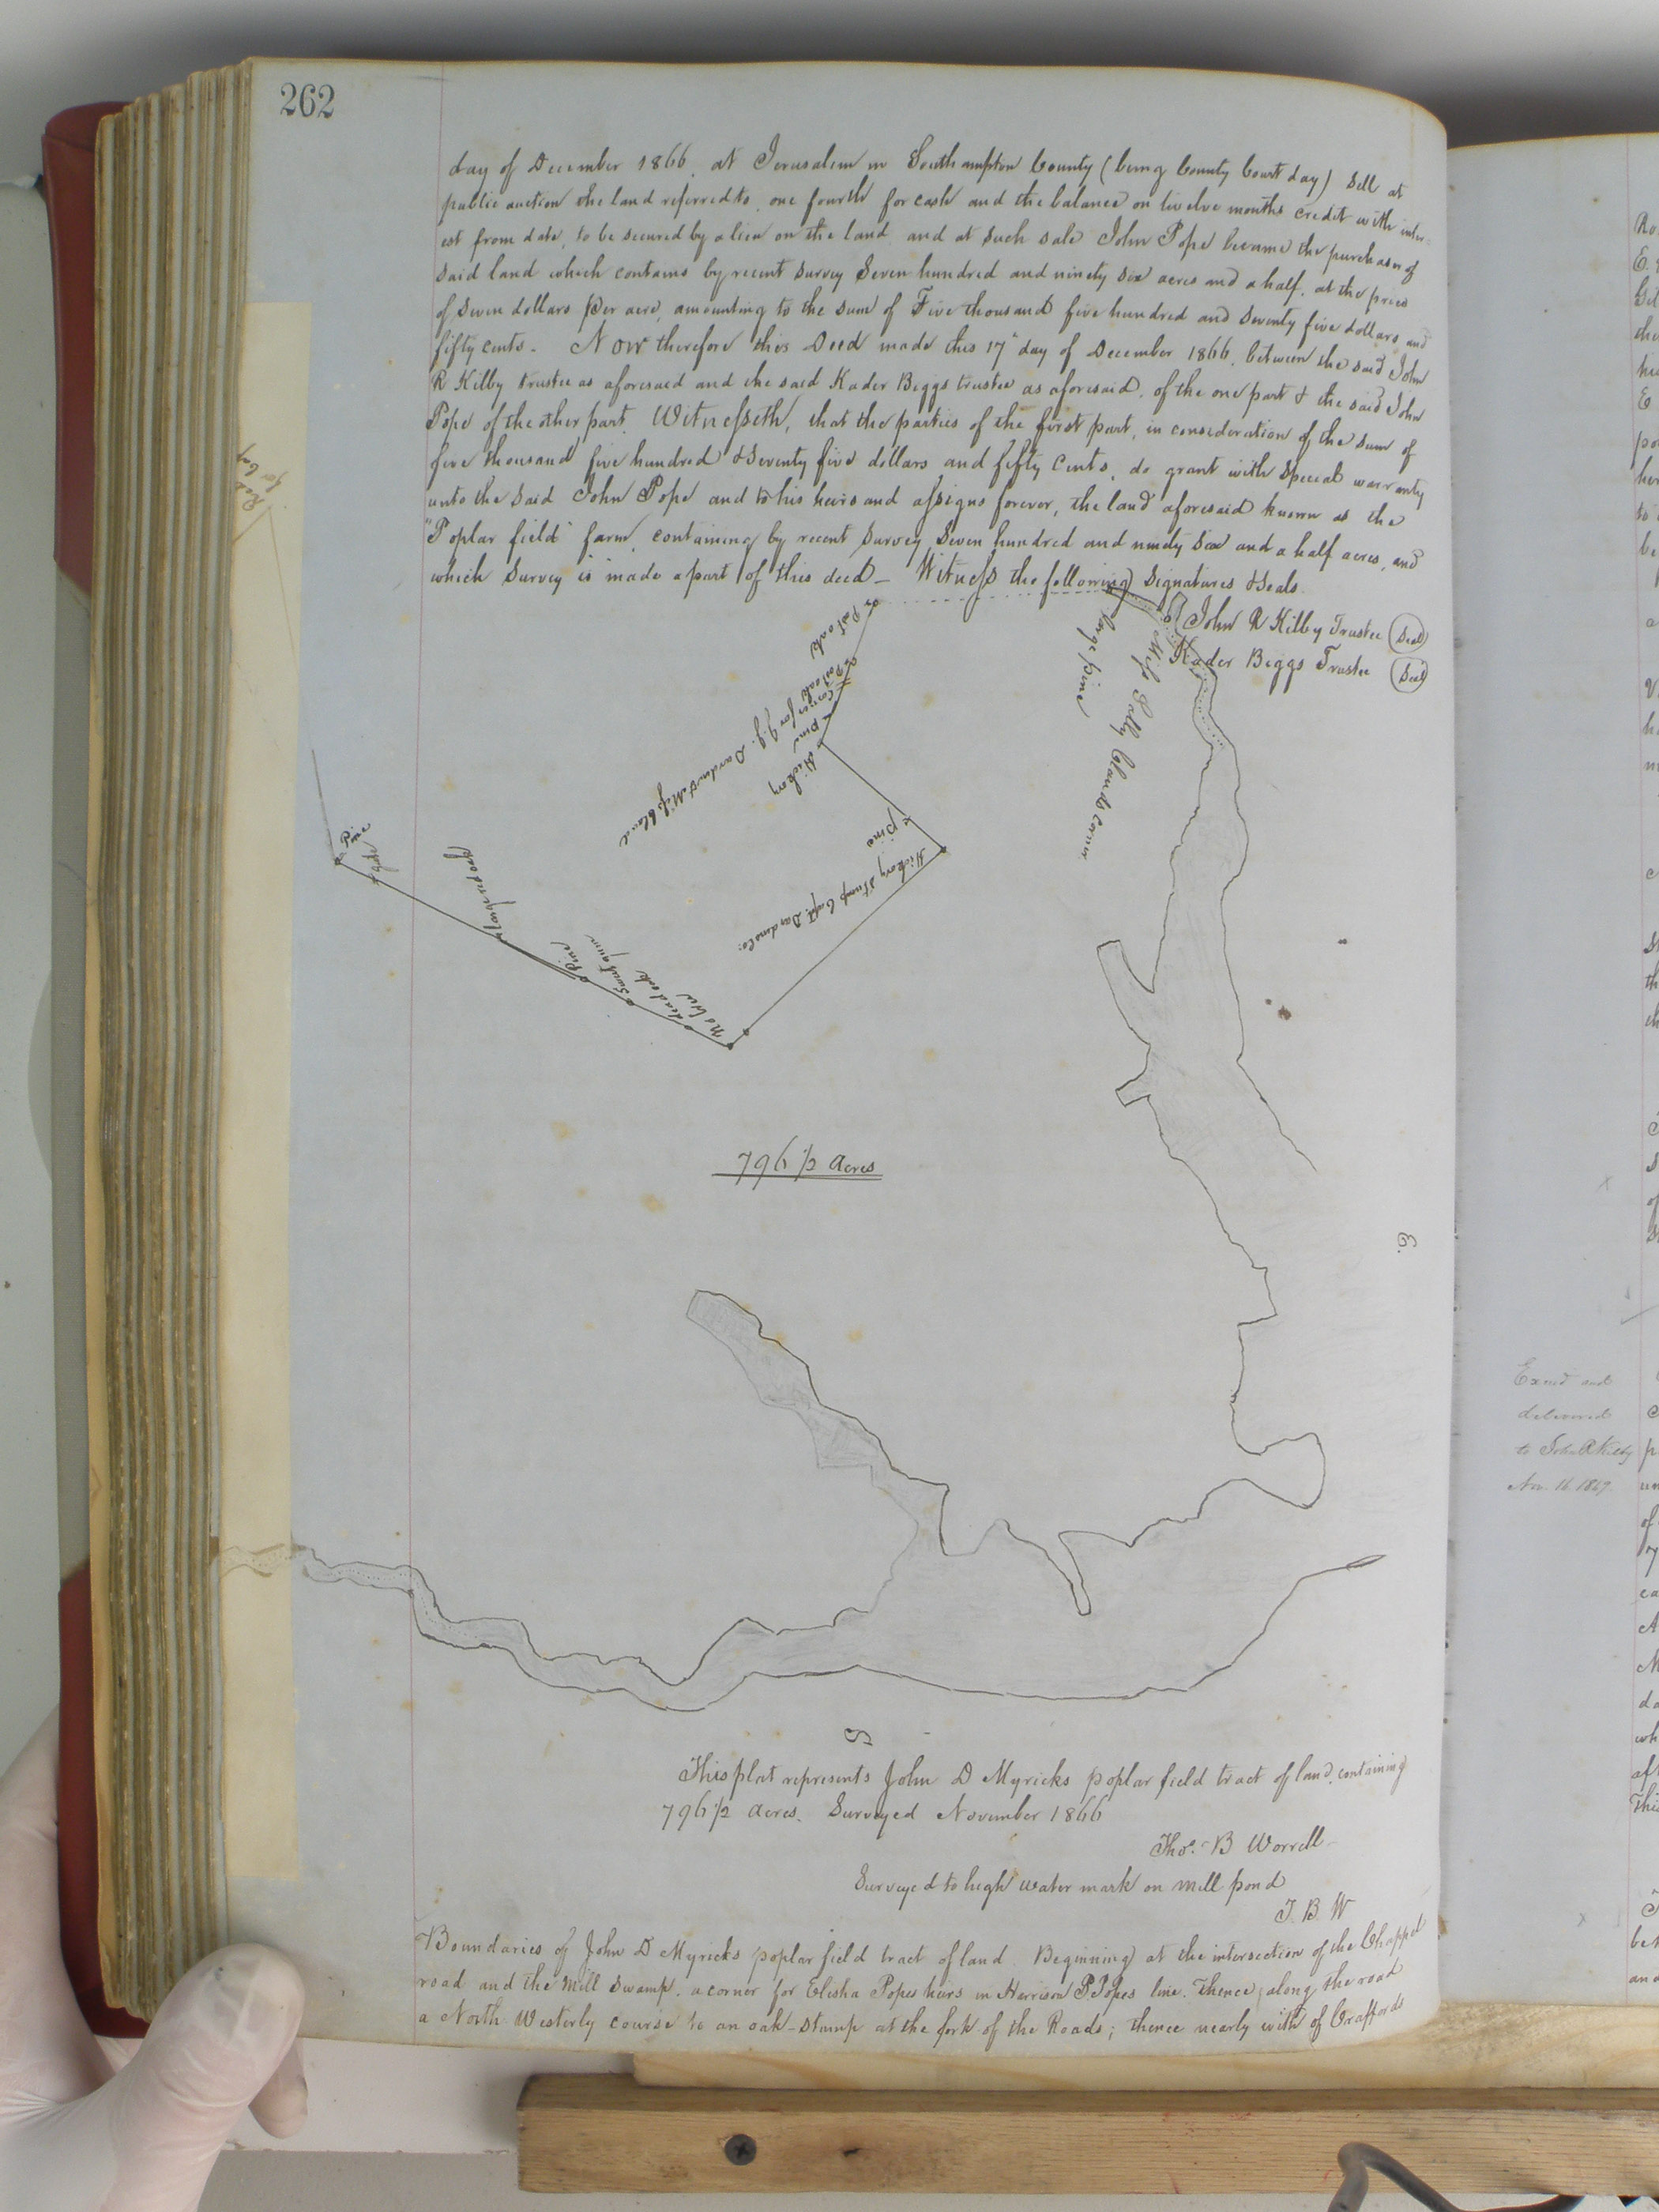 262
day of December 1866, at Jerusalem in Southampton County (being County Court day) sell at
public auction the land referred to, one fourth for cash and the balance on twelve months credit with inter-
est from date, to be secured by a lien on the land, and at such sale John Pope became the purchaser of
said land which contains by recent survey Seven hundred and ninety six acres and a half, at the price
of seven dollars per acre, amounting to the sum of Five thousand five hundred and seventy five dollars and
fifty cents - Now therefore this Deed made this 17" day of December 1866, between the said John
R Kilby trustee as aforesaid and the said Kader Biggs trustee as aforesaid, of the one part & the said John
Pope of the other part, Witnesseth, that the parties of the first part, in consideration of the sum of
five thousand five hundred & seventy five dollars and fifty cents, do grant with special warranty
unto the said John Pope and to his heirs and assigns forever, the land aforesaid known as the
"Poplar field" farm, containing by recent survey Seven hundred and ninety six and a half acres, and
which survey is made a part of this deed - Witness the following signatures & seals.
John R Kilby Trustee (Seal)
Kader Biggs Trustee (Seal)
Post oak
Post oak
Corner for J.J. Darden & Miss Bland
Pine
Hickory
Pine
Hickory Stump Capt. Dardens Co:
large pine
Miss Sally Blands Corner
Pine
large red oak
Pine
Sweet gum
dead oak
796 1/2 Acres
E.
S
This plat represents John D Myricks poplar field tract of land, containing
796 1/2 acres. Surveyed November 1866
Thos. B Worrell
Surveyed to high water mark on mill pond
T. B. W
Boundaries of John D Myricks poplar field tract of land. Beginning at the intersection of the Chappel
road and the Mill Swamp, a corner for Elisha Popes heirs in Harrison P Popes line. Thence along the road
a North Westerly course to an oak-stump at the fork of the Roads; thence nearly with of Craffords
Exmd and
delivered
to John R Kilby
Nov. 16 1867